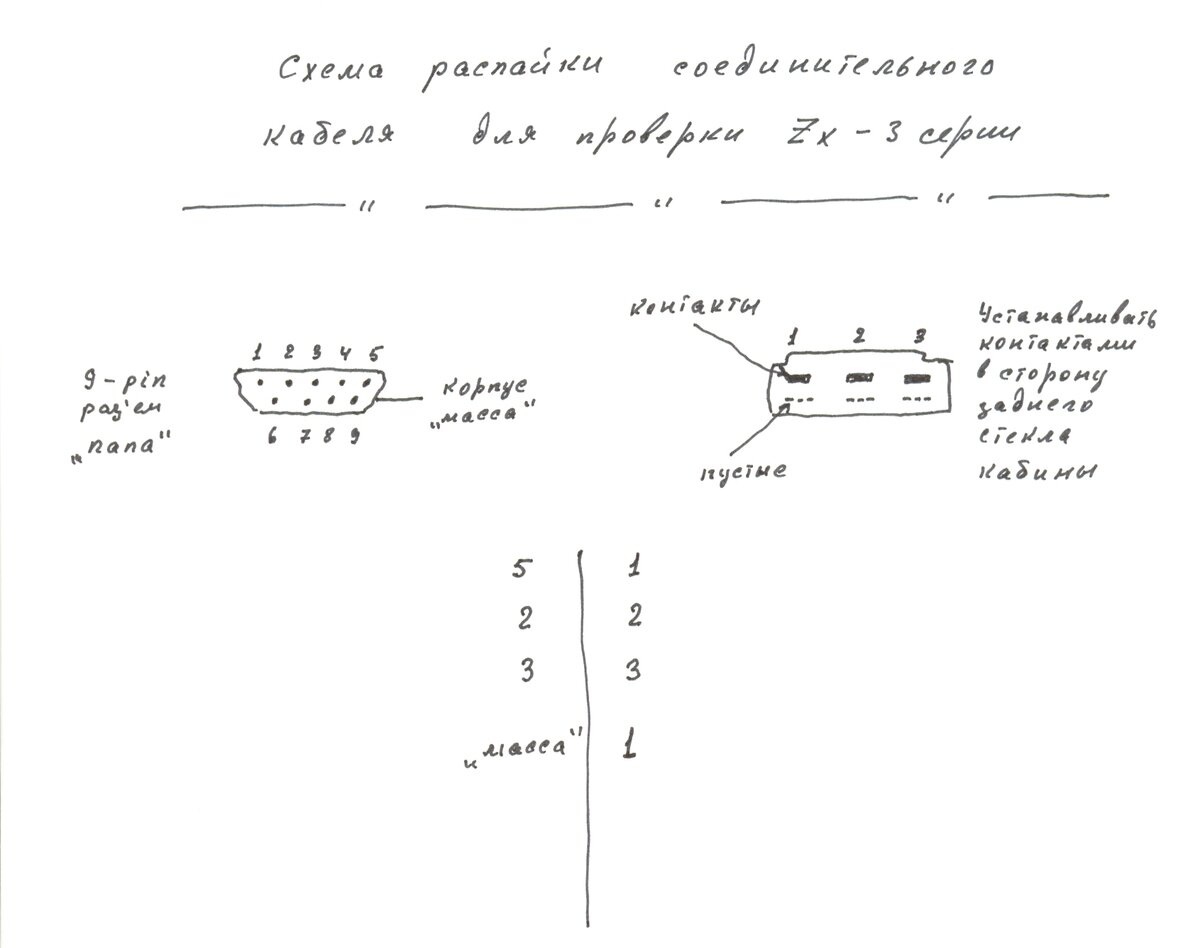 Схема распайки соединительного
кабеля для проверки Zx - 3 серии
— " — " — " —
контакты
1 2 3
Устанавливать
контактами
в сторону
заднего
стекла
кабины
1 2 3 4 5
9-pin
раз'ем
„папа"
корпус
„масса"
6 7 8 9
пустые
5 1
2 2
3 3
„масса" 1